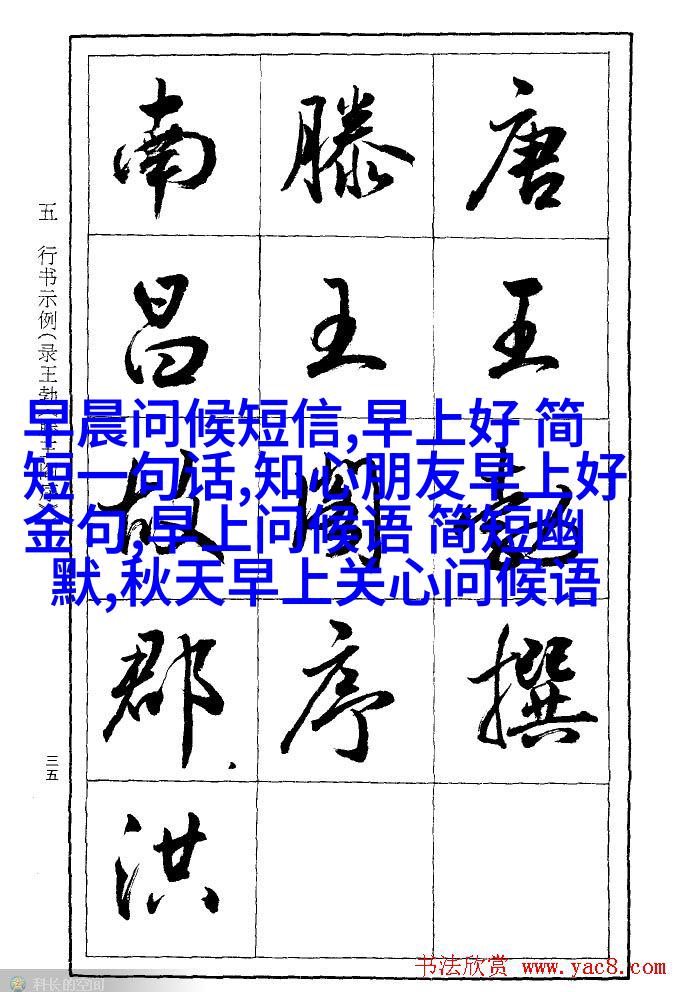 唐王勃撰
滕王阁序
南昌故郡洪
五 行书示例(录王勃
三五
早晨问候短信,早上好 简
短一句话,知心朋友早上好
金句,早上问候语 简短幽
默,秋天早上关心问候语
书法欣赏 www.yac8.com
科长的空间